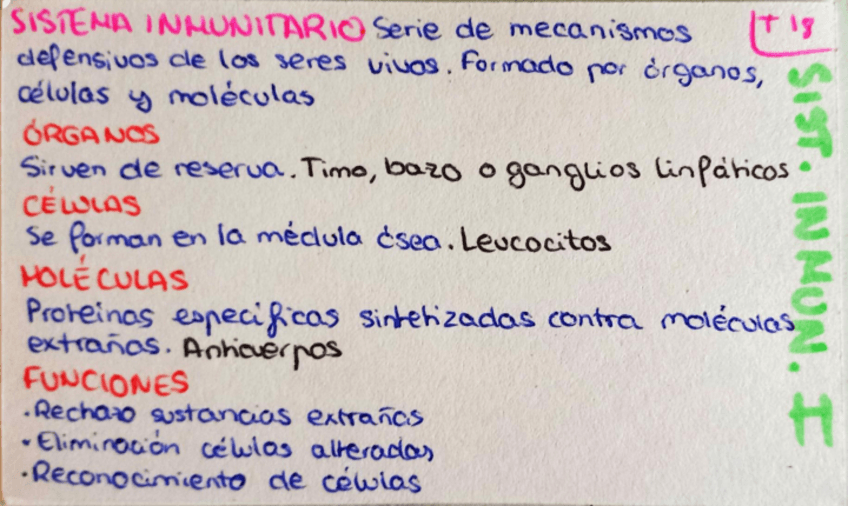 SISTEMA INMUNITARIO Serie de mecanismos
defensivos de los seres vivos. Formado por órganos,
células y moléculas
ÓRGANOS
Sirven de reserva. Timo, bazo o ganglios linfáticos
CÉLULAS
Se forman en la médula ósea. Leucocitos
MOLÉCULAS
Proteinas especificas sintetizadas contra moléculas
extrañas. Anticuerpos
FUNCIONES
·Rechazo sustancias extrañas
·Eliminación células alteradas
·Reconocimiento de células
T 18
SIST. INMUN. I